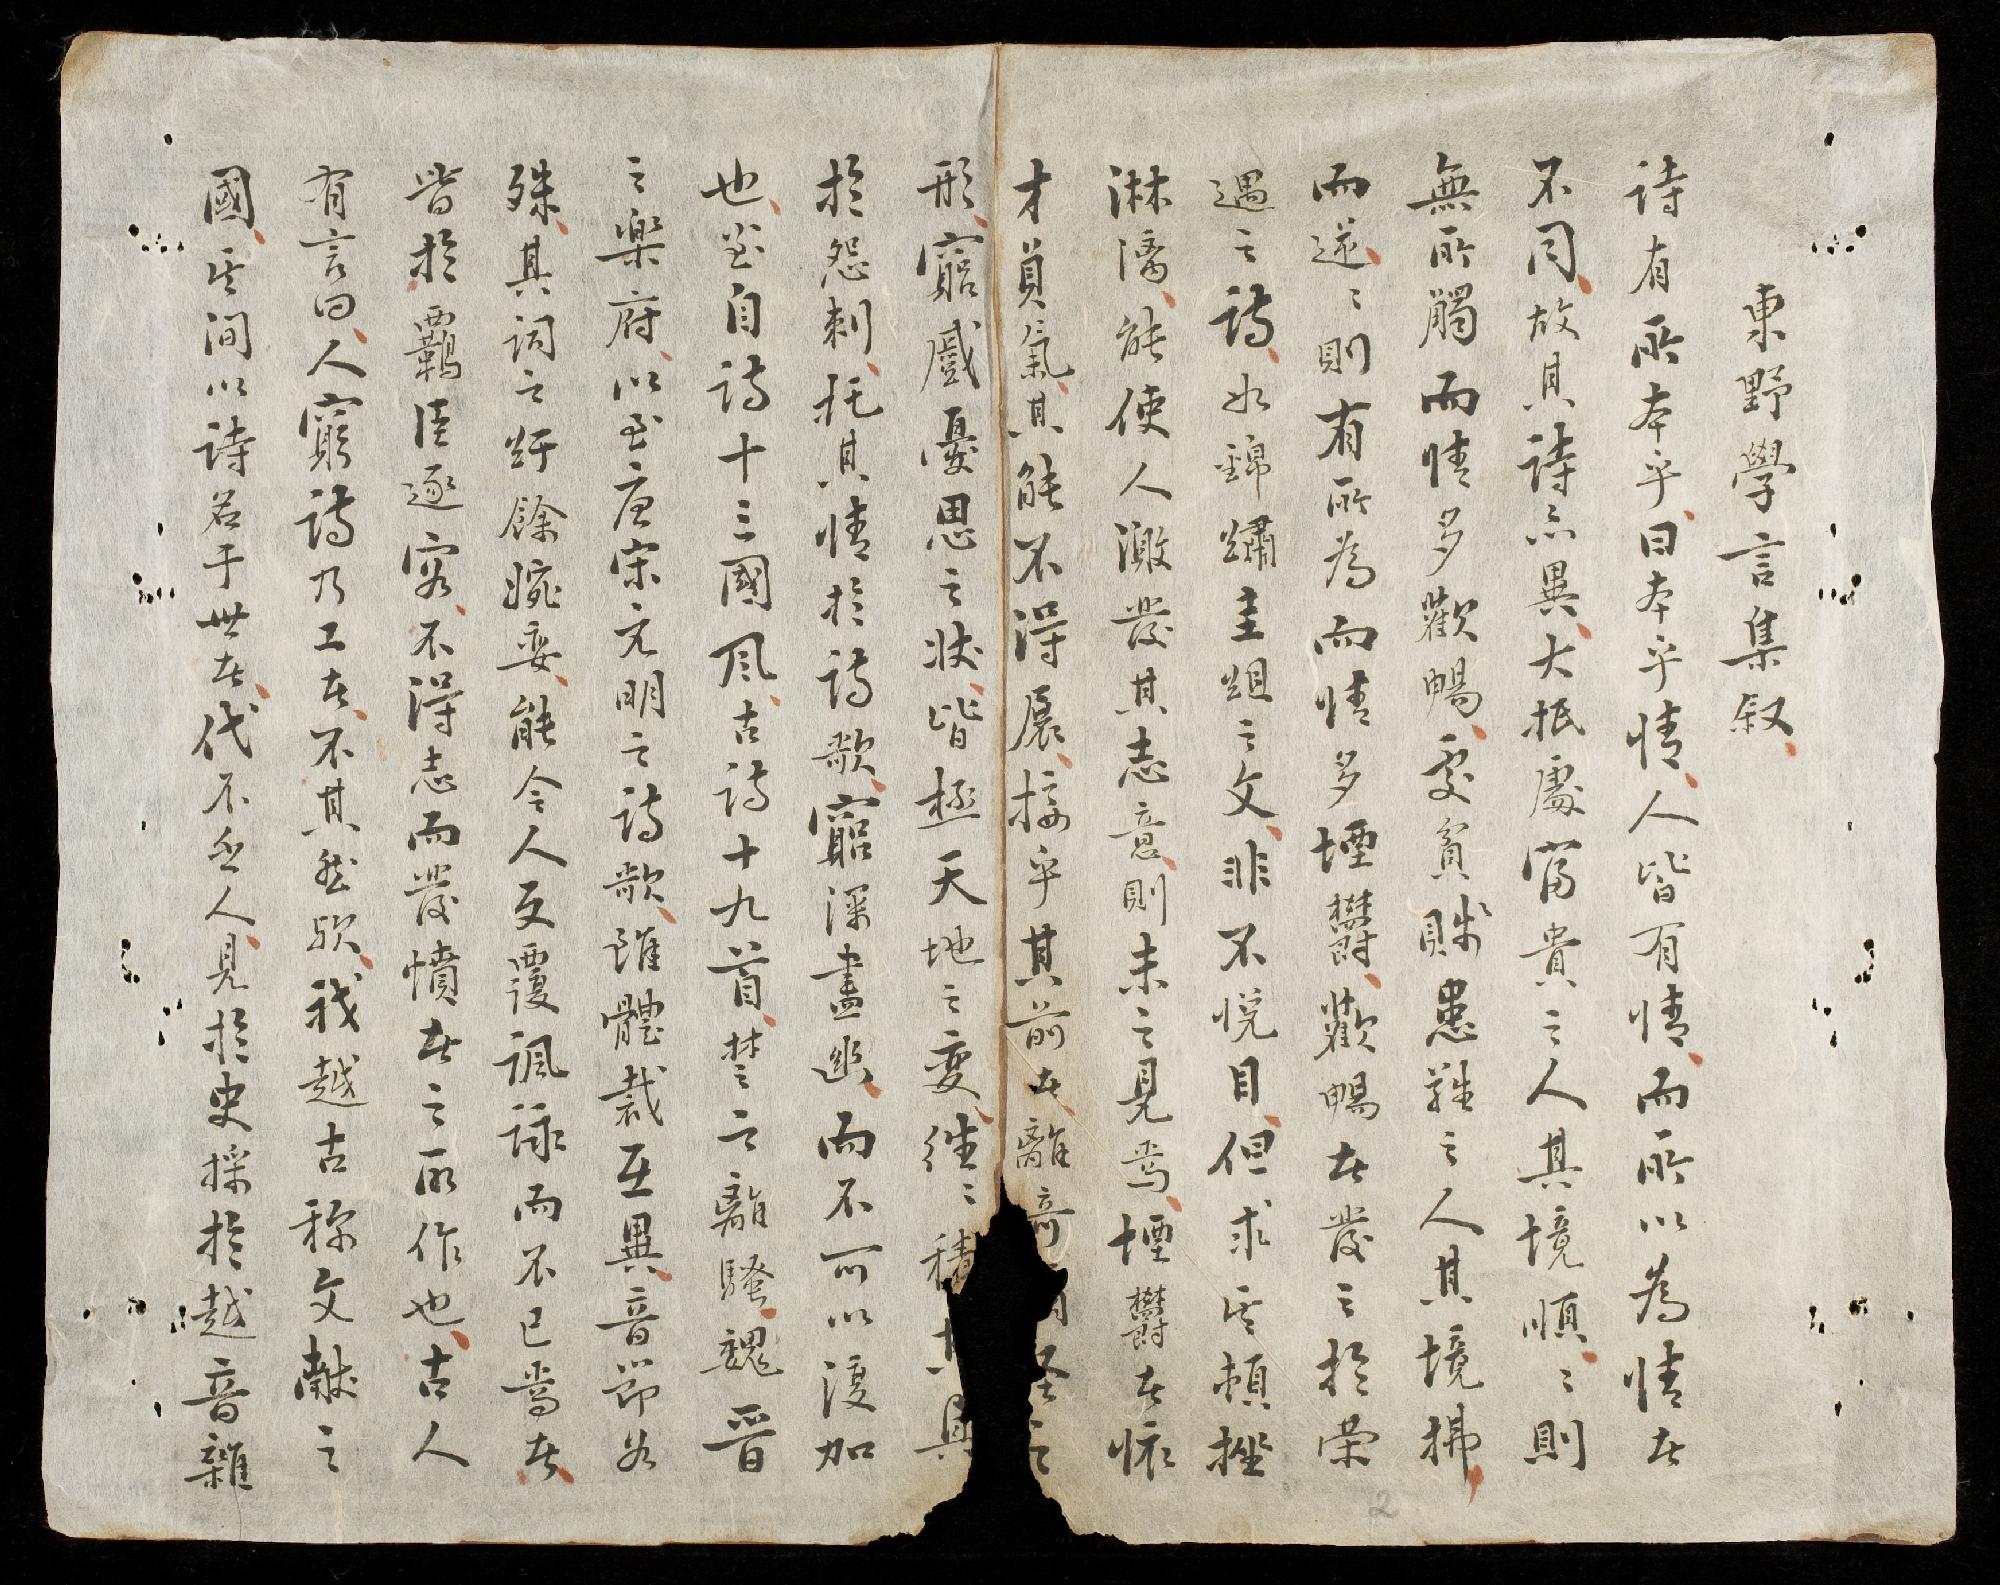 東野學言集叙
詩有所本乎曰本乎情人皆有情而所以為情在
不同故其詩亦異大抵處富貴之人其境順〻則
無所觸而情多歡暢處貧賤患難之人其境拂
而逆〻則有所為而情多堙欝歡暢者發之於荣
遇之詩如錦繡圭組之文非不悅目但求其頓挫
淋漓能使人激發其志意則未之見焉堙欝者懷
才負氣其能不得展接乎其前者離奇 怪之
形窮戚憂思之狀皆極天地之变徃〻積 具
於怨刺托其情於詩歌窮深盡幽而不可以復加
也盖自詩十三國风古詩十九首楚之離騷魏晋
之樂府以至唐宋元明之詩歌雖體裁互異音節各
殊其詞之紆餘婉委能令人反覆諷詠而不已焉者
皆於羈臣逐客不得志而發憤者之所作也古人
有言曰人窮詩乃工者不其然欤我越古稱文献之
國其间以詩名于世者代不乏人見於史採於越音雜